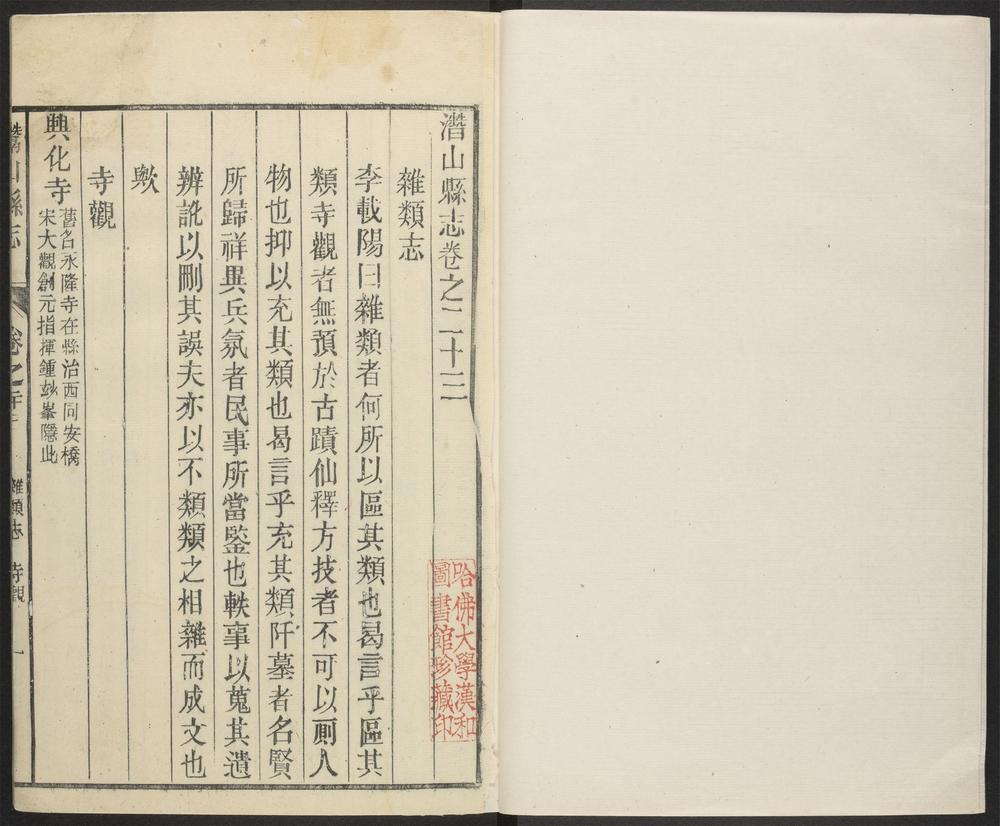 潛山縣志卷之二十三
雜類志
李載陽曰雜類者何所以區其類也曷言乎區其
類寺觀者無預於古蹟仙釋方技者不可以廁人
物也抑以充其類也曷言乎充其類阡墓者名賢
所歸祥異兵氛者民事所當鑒也軼事以蒐其遺
辨訛以刪其誤夫亦以不類類之相雜而成文也
歟
寺觀
興化寺舊名永隆寺在縣治西同安橋
宋大觀創元指揮鍾玅峯隱此
潛山縣志
卷之
雜類志
寺觀
一
哈佛大學漢和
圖書館珍藏印